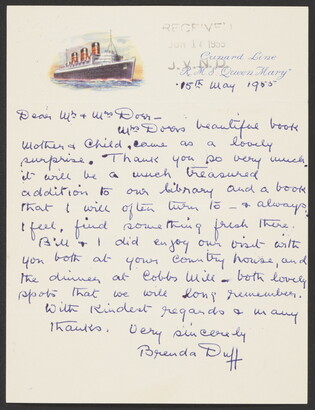 RECEIVED
JUN 17 1955
J. V. N. D.
Cunard Line
R.M.S. "Queen Mary"
15th May 1955
Dear Mr & Mrs Doors-
Mrs Doors beautiful book
Mother & Child, came as a lovely
surprise. Thank you so very much
it will be a much treasured
addition to our library and a book
that I will often turn to - & always,
I feel, find something fresh there.
Bill & I did enjoy our visit with
you both at your country house, and
the dinner at Cobbs Mill - both lovely
spots that we will long remember.
With Kindest regards & many
thanks. Very sincerely
Brenda Duff